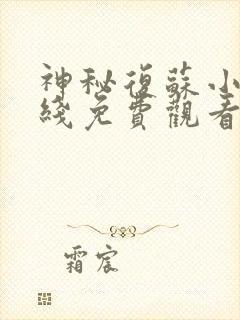 神秘復蘇小
綫免費觀看
霜宸